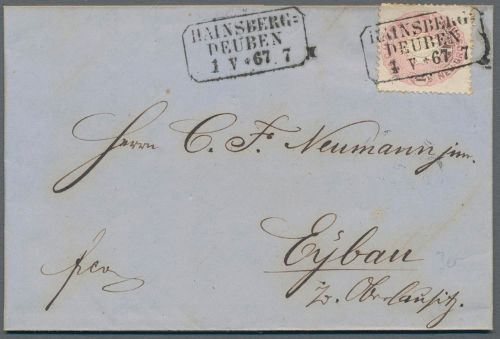 HAINSBERG-
DEUBEN
1 V *67 7
HAINSBERG-
DEUBEN
1 V *67 7
Herrn C. F. Neumann jun.
Eÿbau
fco
Oberlausitz.